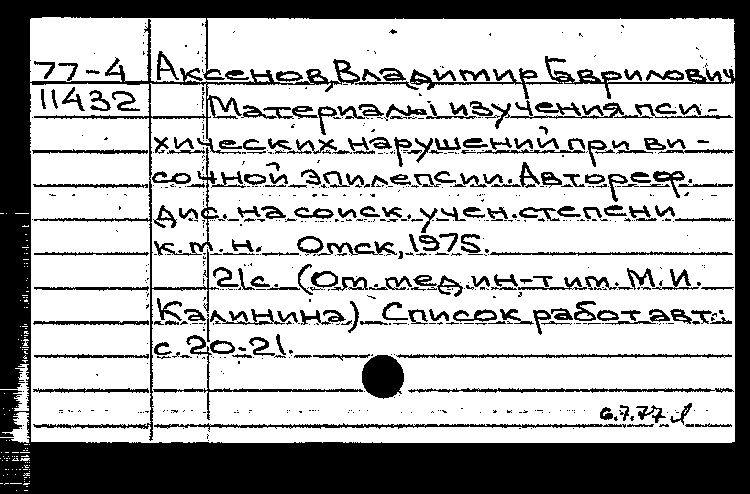 77-4 Аксенов, Владимир Гаврилович
11432 Материалы изучения пси-
хических нарушений при ви-
сочной эпилепсии. Автореф.
дис. на соиск. учен. степени
к.т.н. Омск, 1975.
21с. (От. мед. ин-т им. М.И.
Калинина) Список работ авт.:
с. 20-21.
6.7.77